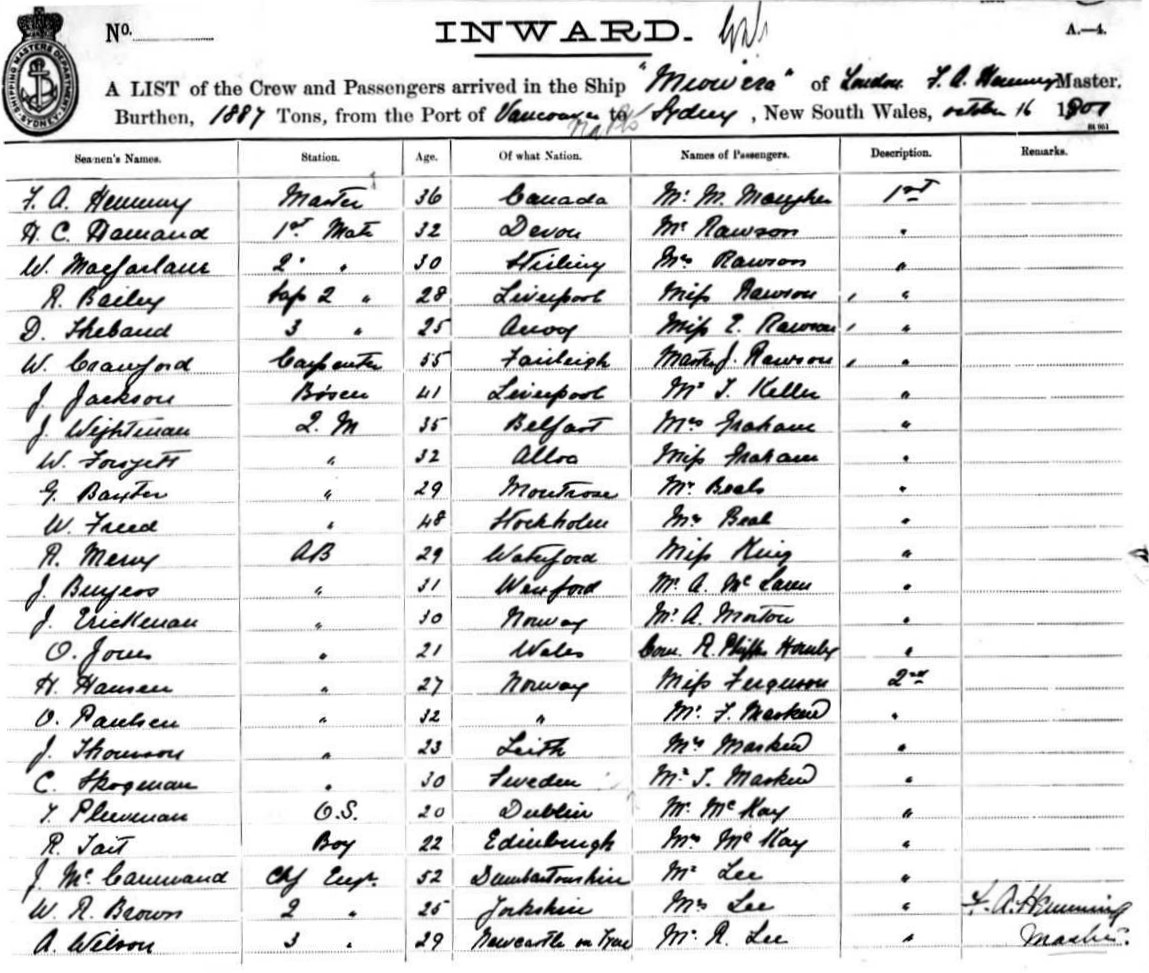 No. INWARD. A.—4.
SHIPPING MASTERS DEPARTMENT SYDNEY
A LIST of the Crew and Passengers arrived in the Ship "Miowera" of London F. A. Hemming Master.
Burthen, 1887 Tons, from the Port of Vancouver to Sydney, New South Wales, October 16 1901
Seamen's Names. Station. Age. Of what Nation. Names of Passengers. Description. Remarks.
F. A. Hemming Master 36 Canada Mr. M. 1st
H. C. Hamand 1st Mate 32 Devon Mr Rawson "
W. Macfarlane 2 " 30 Stirling Mrs Rawson "
R. Bailey Sup 2 " 28 Liverpool Miss Rawson "
D. 3 " 25 Miss E. Rawson "
W. Crawford Carpenter 55 Fairleigh Master J. Rawson "
J. Jackson Bosen 41 Liverpool Mr "
J. Wightman Q. M 35 Belfast Mrs Graham "
W. Forsyth " 32 Alloa Miss Graham "
G. Baxter " 29 Montrose Mr Beals "
W. Freed " 48 Stockholm Mrs Beals "
R. AB 29 Waterford Miss King "
J. Burgess " 31 Wexford Mr. A. Mc Laren "
J. Erickman " 30 Norway Mr. A. Morton "
O. Jones " 21 Wales Com. R. Phipps Hornby "
H. Hansen " 27 Norway Miss Ferguson 2nd
O. Paulsen " 32 " Mr. "
J. Thomson " 23 Leith Mrs "
C. Skogman " 30 Sweden Mr "
O.S. 20 Dublin Mr. Mc Kay "
R. Tait Boy 22 Edinburgh Mrs Mc Kay "
J. Mc Cammand Chf Engr. 52 Dumbartonshire Mr Lee "
W. R. Brown 2 " 25 Yorkshire Mrs Lee " F. A. Hemming
A. Wilson 3 " 29 Newcastle on Tyne Mr. R. Lee " Master.